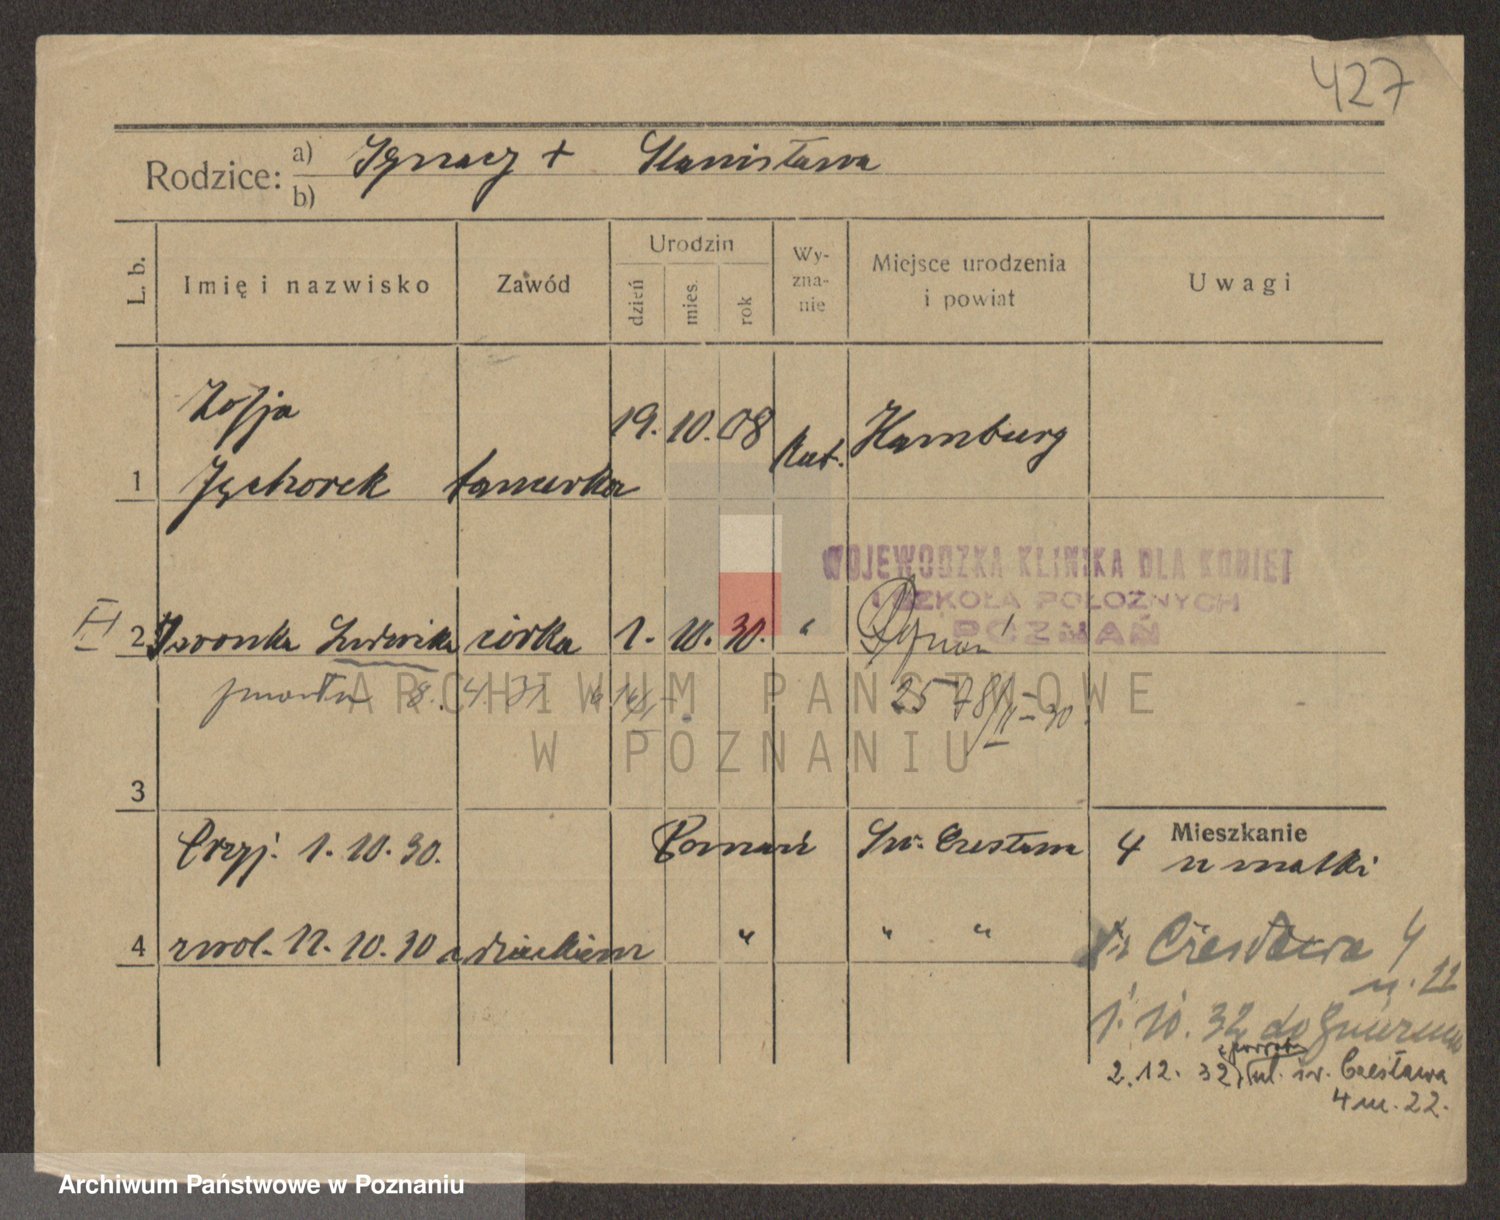 427
Rodzice: a) Ignacy + Stanisława
b)
L. b. Imię i nazwisko Zawód Urodzin dzień mies. rok Wyznanie Miejsce urodzenia i powiat Uwagi
Zofja 19. 10. 08 Kat. Hamburg
1 Jęchorek
WOJEWÓDZKA KLINIKA DLA KOBIET
I SZKOŁA POŁOŻNYCH
POZNAŃ
II 2 Iwonka Ludwika córka 1. 10. 30. " Poznań
zmarła 8. 4. 31 2578/II-30
ARCHIWUM PAŃSTWOWE
W POZNANIU
3
Mieszkanie
Przyj. 1. 10. 30. Poznań Św. Czesława 4 u matki
4 zwol. 11. 10. 30 z dzieckiem " " "
Św Czesława 4
m. 22
1. 10. 32 do Gniezna
z powrotem
2. 12. 32 ul. św. Czesława
4 m. 22.
Archiwum Państwowe w Poznaniu